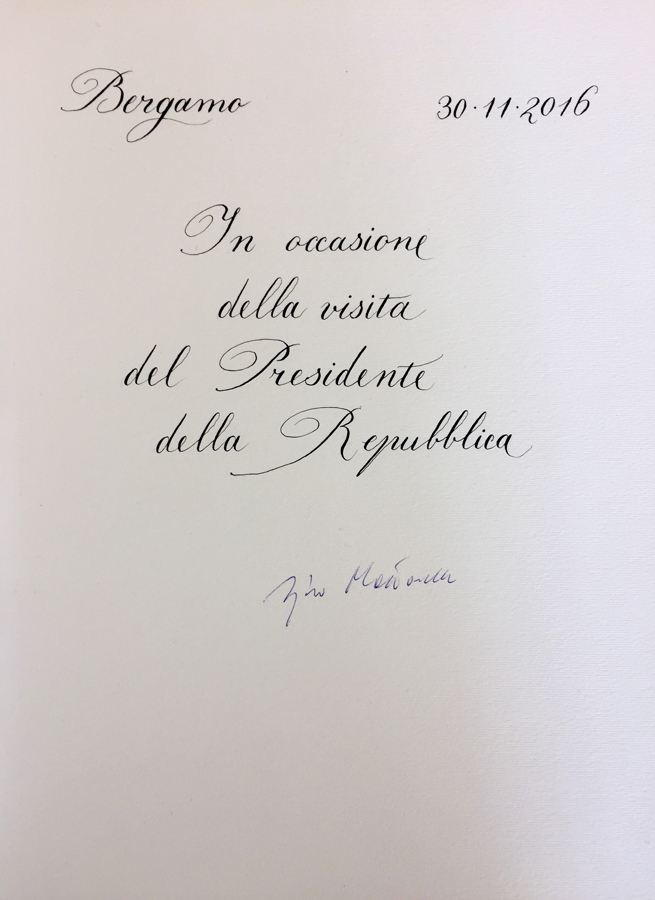 Bergamo 30·11·2016
In occasione
della visita
del Presidente
della Repubblica
Sergio Mattarella